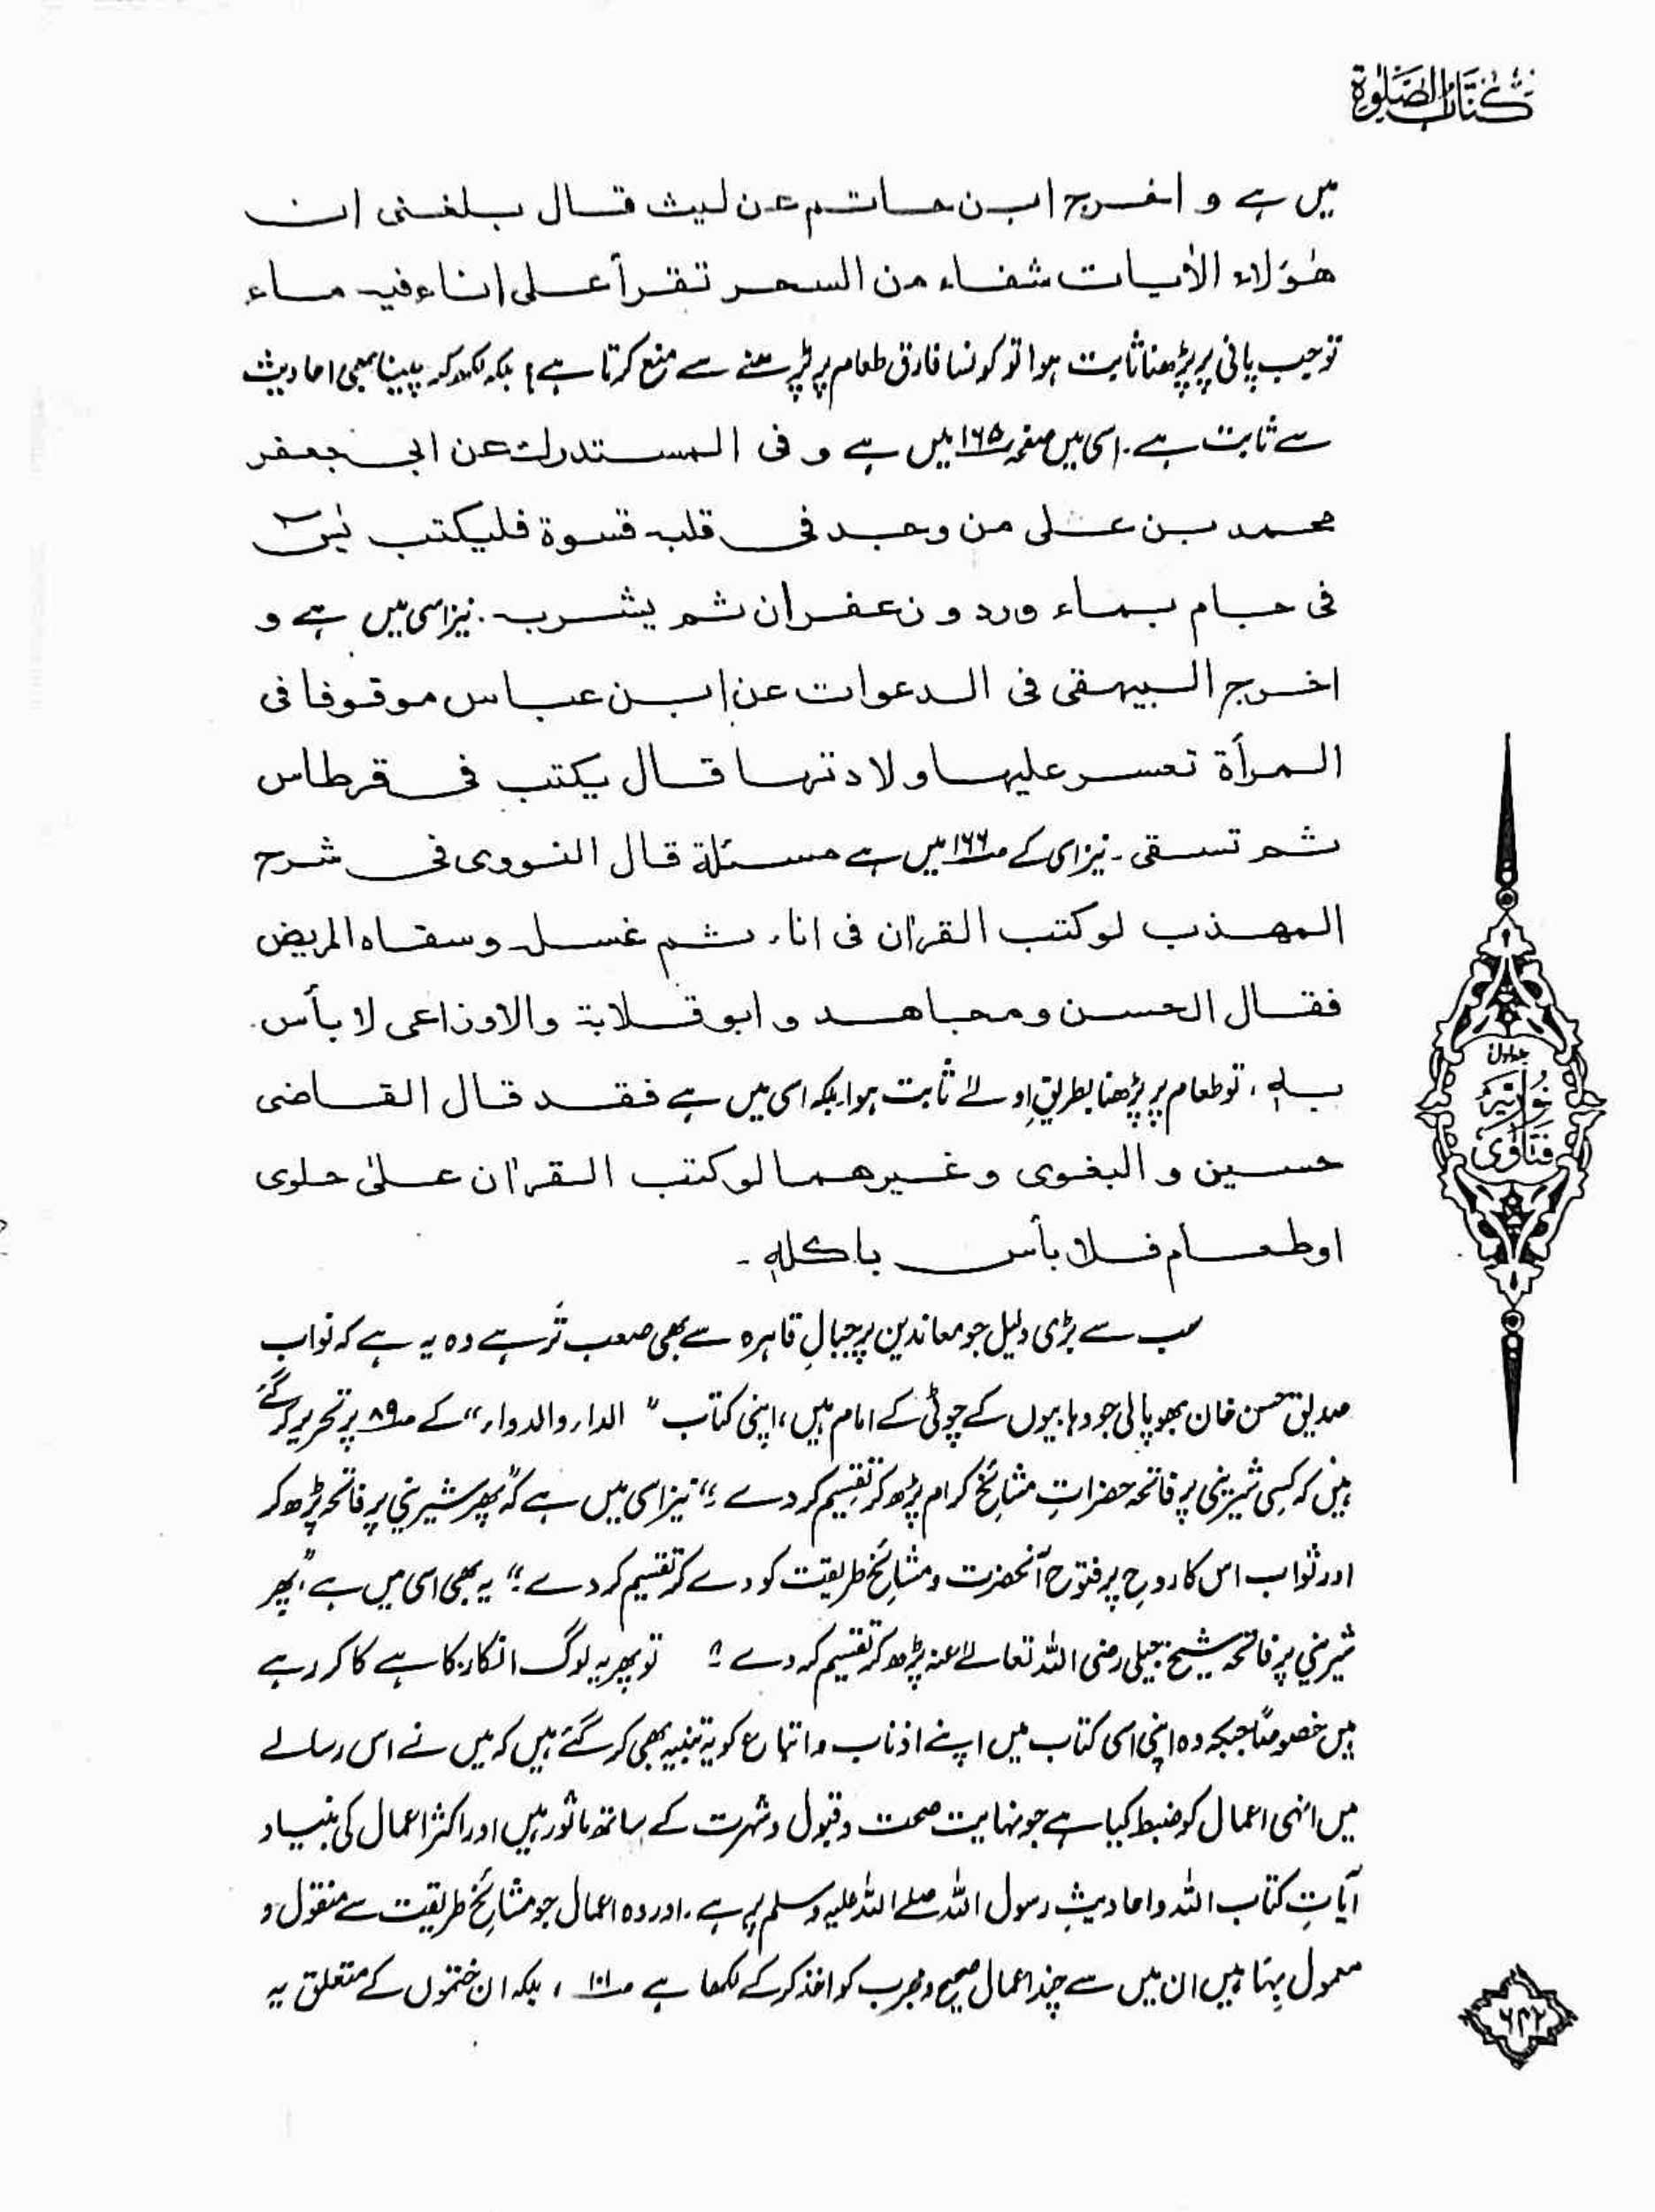 كتاب الصلوة
میں ہے و اخرج ابن حاتم عن ليث قال بلغنى ان
هٰؤلاء الاٰيات شفاء من السحر تقرأ على اناء فيه ماء
توجب پانی پر پڑھنا ثابت ہوا تو کونسا فارق طعام پر پڑھنے سے منع کرتا ہے؟ بلکہ لکھ کر پینا بھی احادیث
سے ثابت ہے۔ اسی میں صفحہ ۱۶۵ میں ہے و فى المستدرك عن ابى جعفر
محمد بن على من وجد فى قلبه قسوة فليكتب يٰسٓ
فى جام بماء ورد و زعفران ثم يشرب۔ نیز اسی میں ہے و
اخرج البيهقى فى الدعوات عن ابن عباس موقوفا فى
المرأة تعسر عليها ولادتها قال يكتب فى قرطاس
ثم تسقى۔ نیز اسی کے ص۱۶۶ میں ہے مسئلة قال النووى فى شرح
المهذب لو كتب القراٰن فى اناء ثم غسل وسقاه المريض
فقال الحسن ومجاهد و ابو قلابة والاوزاعى لا بأس
بهٖ، تو طعام پر پڑھنا بطریقِ اولےٰ ثابت ہوا بلکہ اسی میں ہے فقد قال القاضى
حسين و البغوى و غيرهما لو كتب القراٰن علىٰ حلوى
او طعام فلا بأس باكلهٖ۔
سب سے بڑی دلیل جو معاندین پر جبالِ قاہرہ سے بھی صعب تَر ہے وہ یہ ہے کہ نواب
صدیق حسن خان بھوپالی جو وہابیوں کے چوٹی کے امام ہیں، اپنی کتاب "الداء والدواء" کے ص۸۹ پر تحریر کر گئے
ہیں کہ کسی شیرینی پر فاتحہ حضراتِ مشائخ کرام پڑھ کر تقسیم کر دے"۔ نیز اسی میں ہے کہ "پھر شیرینی پر فاتحہ پڑھ کر
اور ثواب اس کا روحِ پر فتوح آنحضرت و مشائخ طریقت کو دے کر تقسیم کر دے"۔ یہ بھی اسی میں ہے، "پھر
شیرینی پر فاتحہ شیخ جیلی رضی اللہ تعالےٰ عنہ پڑھ کر تقسیم کر دے"۔ تو پھر یہ لوگ انکار کاہے کا کر رہے
ہیں خصوصًا جبکہ وہ اپنی اسی کتاب میں اپنے اذناب و اتباع کو یہ تنبیہ بھی کر گئے ہیں کہ میں نے اس رسالے
میں انہی اعمال کو ضبط کیا ہے جو نہایت صحت و قبول و شہرت کے ساتھ ماثور ہیں اور اکثر اعمال کی بنیاد
آیاتِ کتاب اللہ و احادیثِ رسول اللہ صلے اللہ علیہ وسلم پر ہے۔ اور وہ اعمال جو مشائخِ طریقت سے منقول و
معمول بہا ہیں ان میں سے چند اعمال صحیح و مجرب کو اخذ کر کے لکھا ہے ص۱۰۱، بلکہ ان ختموں کے متعلق یہ
جلد اول
نوریہ
فتاوی
۶۴۲